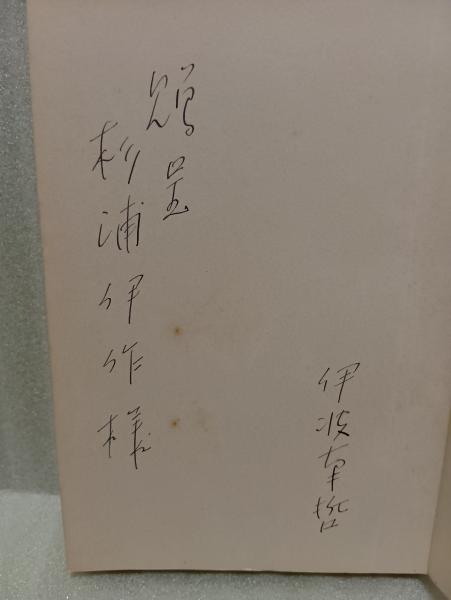 贈呈
杉浦伊作様
伊波南哲